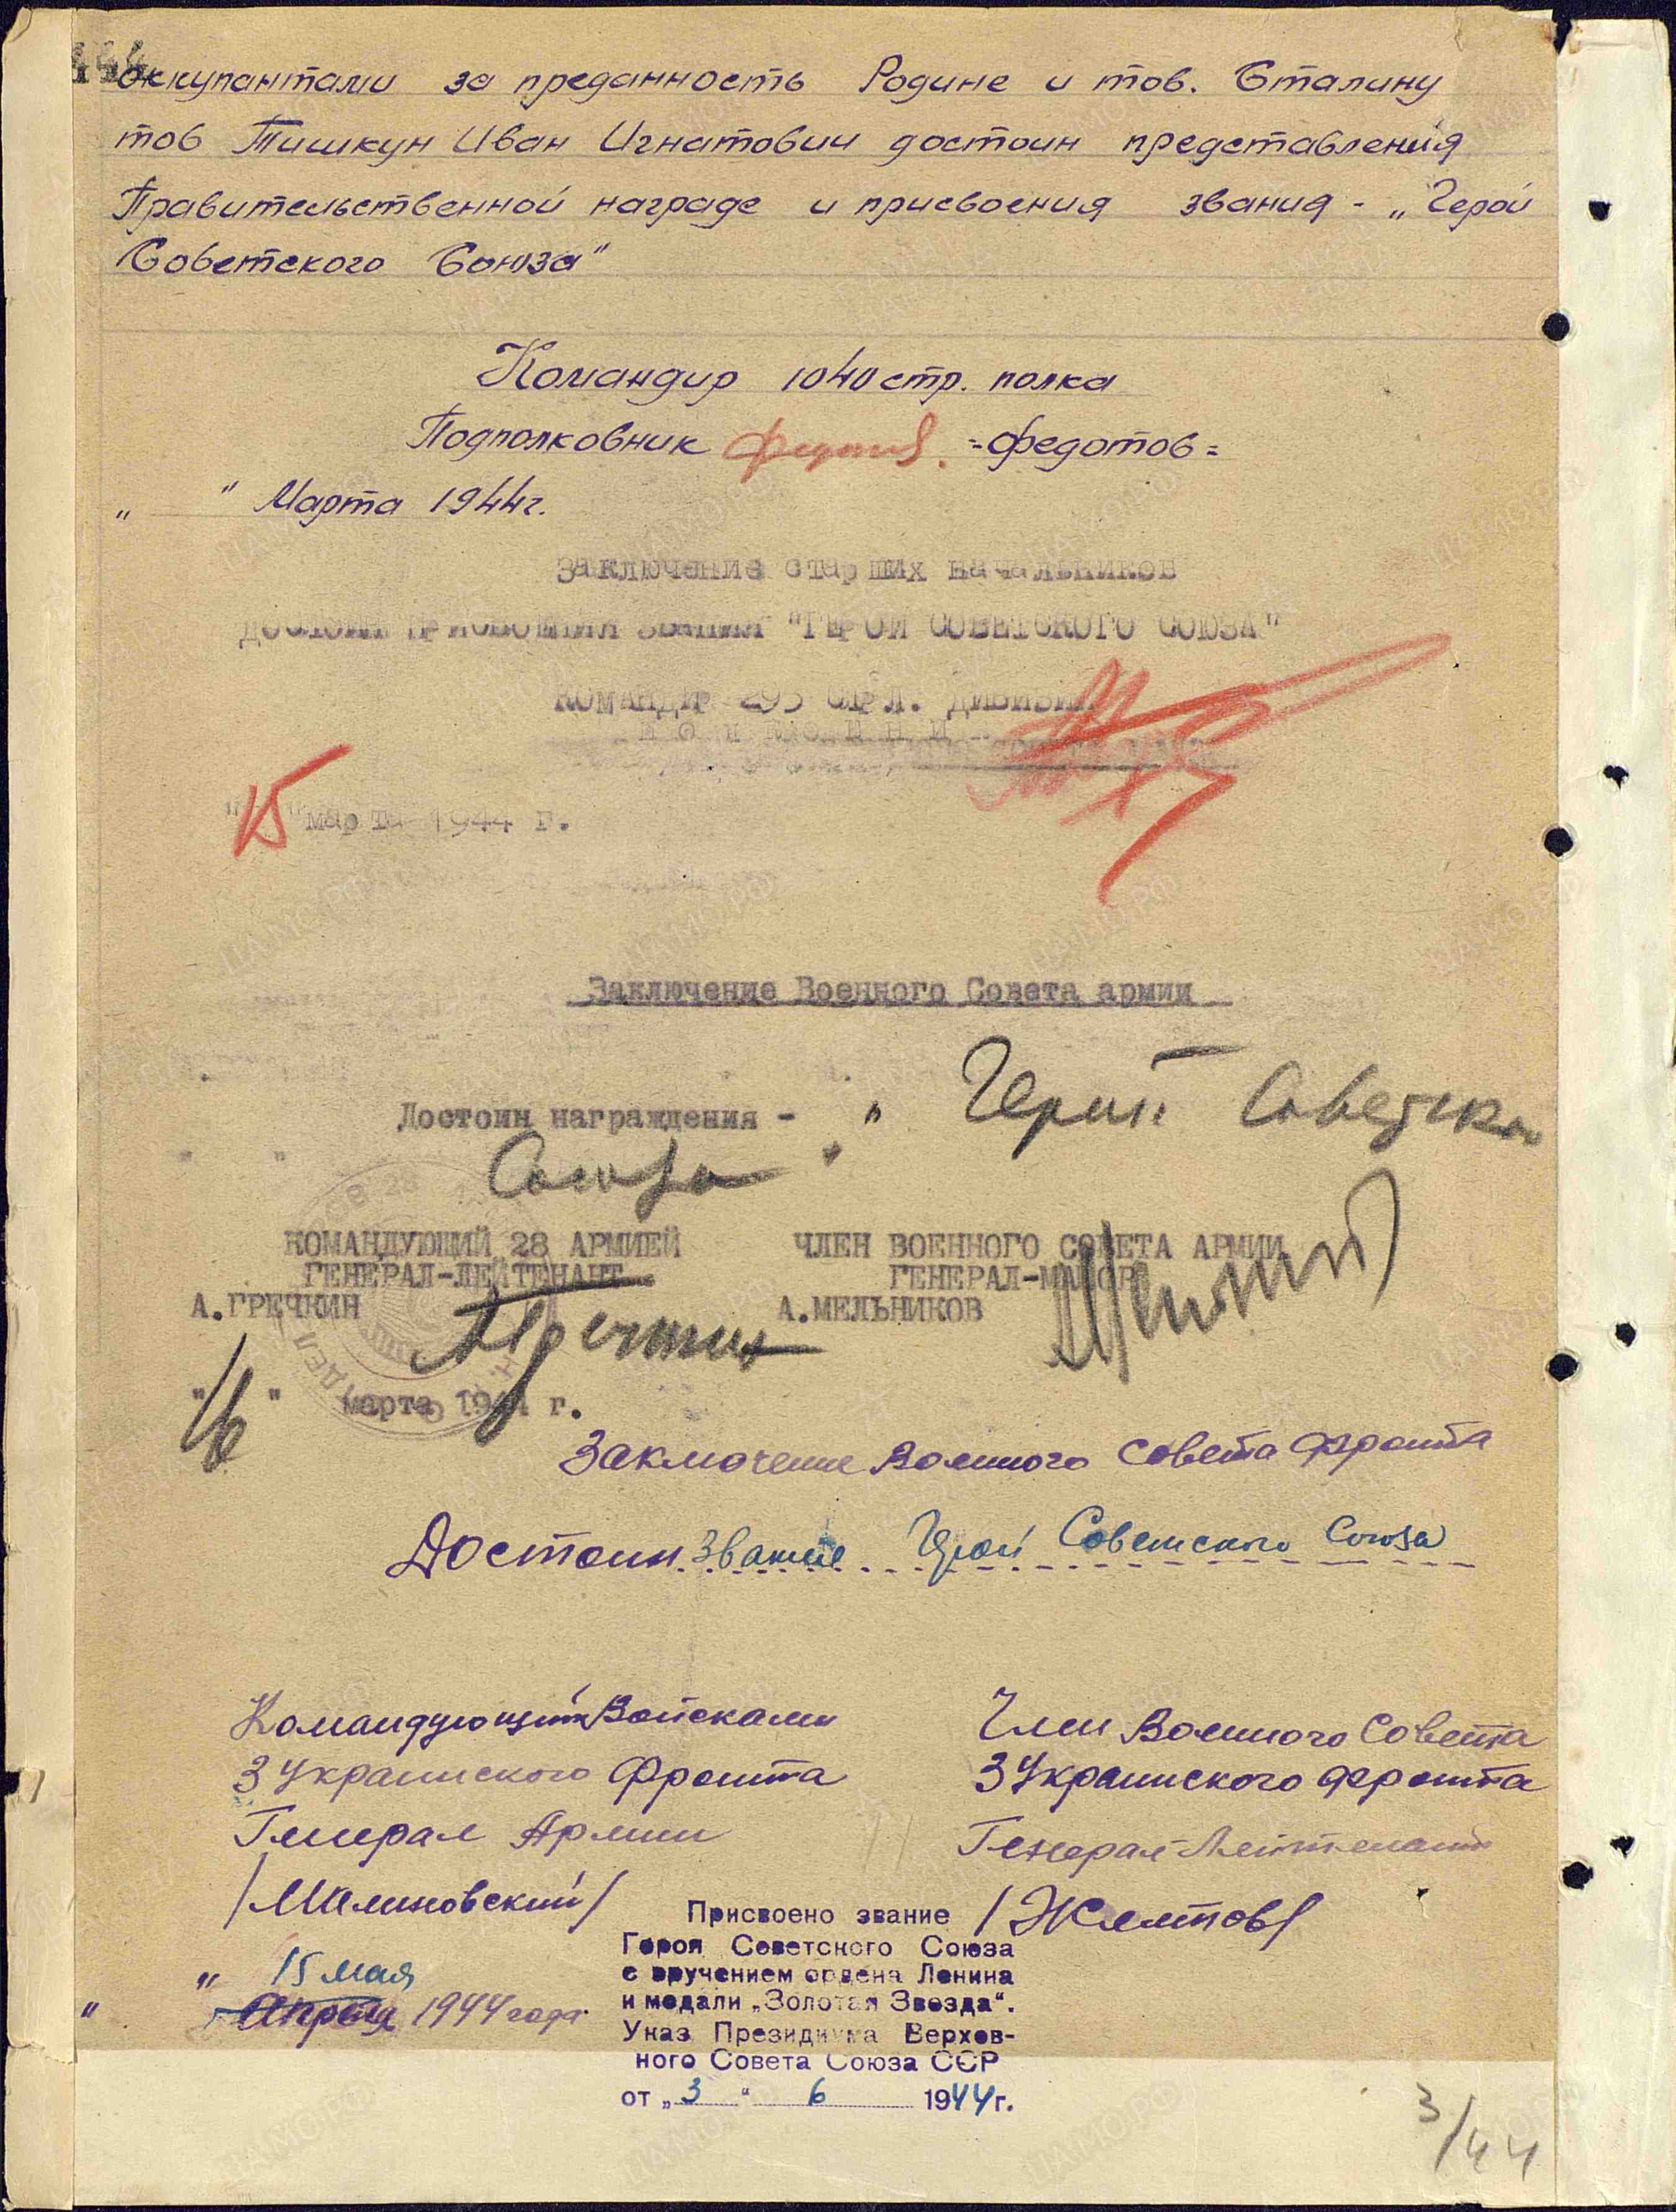 оккупантами за преданность Родине и тов. Сталину
тов Тишкун Иван Игнатович достоин представления
Правительственной награде и присвоения звания - „Герой
Советского Союза"
Командир 1040 стр. полка
Подполковник =Федотов=
„ " Марта 1944г.
Заключение старших начальников
достоин присвоения звания "ГЕРОЙ СОВЕТСКОГО СОЮЗА"
КОМАНДИР 295 СТРЛ. ДИВИЗИИ
"15" марта 1944 г.
Заключение Военного Совета армии
Достоин награждения - „ Герой Советского
Союза "
КОМАНДУЮЩИЙ 28 АРМИЕЙ
ГЕНЕРАЛ-ЛЕЙТЕНАНТ
А.ГРЕЧКИН
ЧЛЕН ВОЕННОГО СОВЕТА АРМИИ
ГЕНЕРАЛ-МАЙОР
А.МЕЛЬНИКОВ
"16" марта 1944 г.
Заключение Военного Совета Фронта
Достоин звание Герой Советского Союза
Командующий Войсками
3 Украинского Фронта
Генерал Армии
/Малиновский/
Член Военного Совета
3 Украинского Фронта
Генерал-Лейтенант
/Желтов/
„ 15 мая
" Апреля 1944 года
Присвоено звание
Героя Советского Союза
с вручением ордена Ленина
и медали „Золотая Звезда".
Указ Президиума Верхов-
ного Совета Союза ССР
от „3" 6 1944г.
3/44